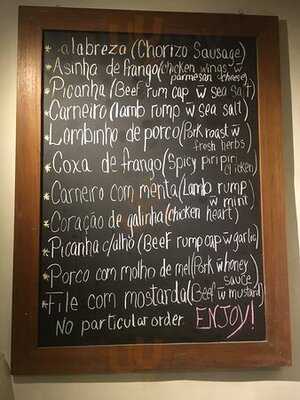 * alabreza (Chorizo Sausage)
* Asinha de frango (chicken wings w̄
parmesan cheese)
* Picanha (Beef rum cap w̄ sea salt)
* Carneiro (lamb rump w̄ sea salt)
* Lombinho de porco (Pork roast w̄
fresh herbs)
* Coxa de frango (Spicy piri piri
chicken)
* Carneiro com menta (Lamb rump
w̄ mint)
* Coração de galinha (chicken heart)
* Picanha c/alho (Beef rump cap w̄ garlic)
* Porco com molho de mel (Pork w̄ honey
sauce)
* File com mostarda (Beef w̄ mustard)
No particular order ENJOY!